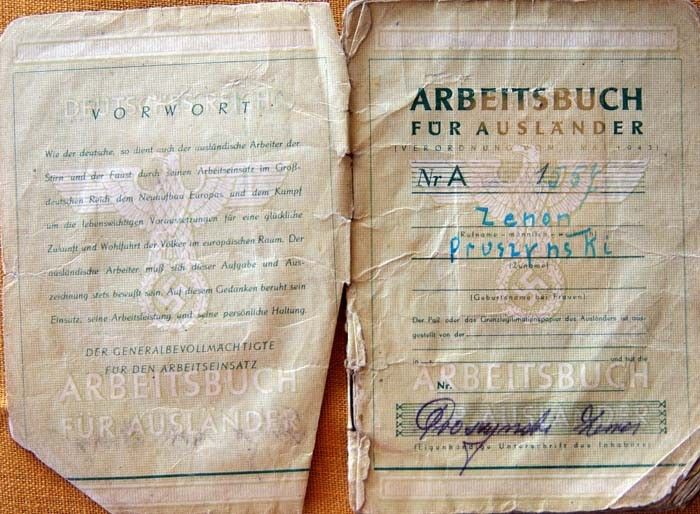 DEUTSCHES REICH
VORWORT
Wie der deutsche, so dient auch der ausländische Arbeiter der
Stirn und der Faust durch seinen Arbeitseinsatz im Groß-
deutschen Reich dem Neuaufbau Europas und dem Kampf
um die lebenswichtigen Voraussetzungen für eine glückliche
Zukunft und Wohlfahrt der Völker im europäischen Raum. Der
ausländische Arbeiter muß sich dieser Aufgabe und Aus-
zeichnung stets bewußt sein. Auf diesem Gedanken beruht sein
Einsatz, seine Arbeitsleistung und seine persönliche Haltung.
DER GENERALBEVOLLMÄCHTIGTE
FÜR DEN ARBEITSEINSATZ
ARBEITSBUCH
FÜR AUSLÄNDER
ARBEITSBUCH
FÜR AUSLÄNDER
(VERORDNUNG VOM 1. MAI 1943)
Nr A
Zenon
Rufname – männlich – weiblich)
Pruszynski
(Zuname)
(Geburtsname bei Frauen)
Der Paß oder das Grenzlegitimationspapier des Ausländers ist aus-
gestellt von der
in und hat die
Nr.
ARBEITSBUCH
Pruszynski Zenon
(Eigenhändige Unterschrift des Inhabers)